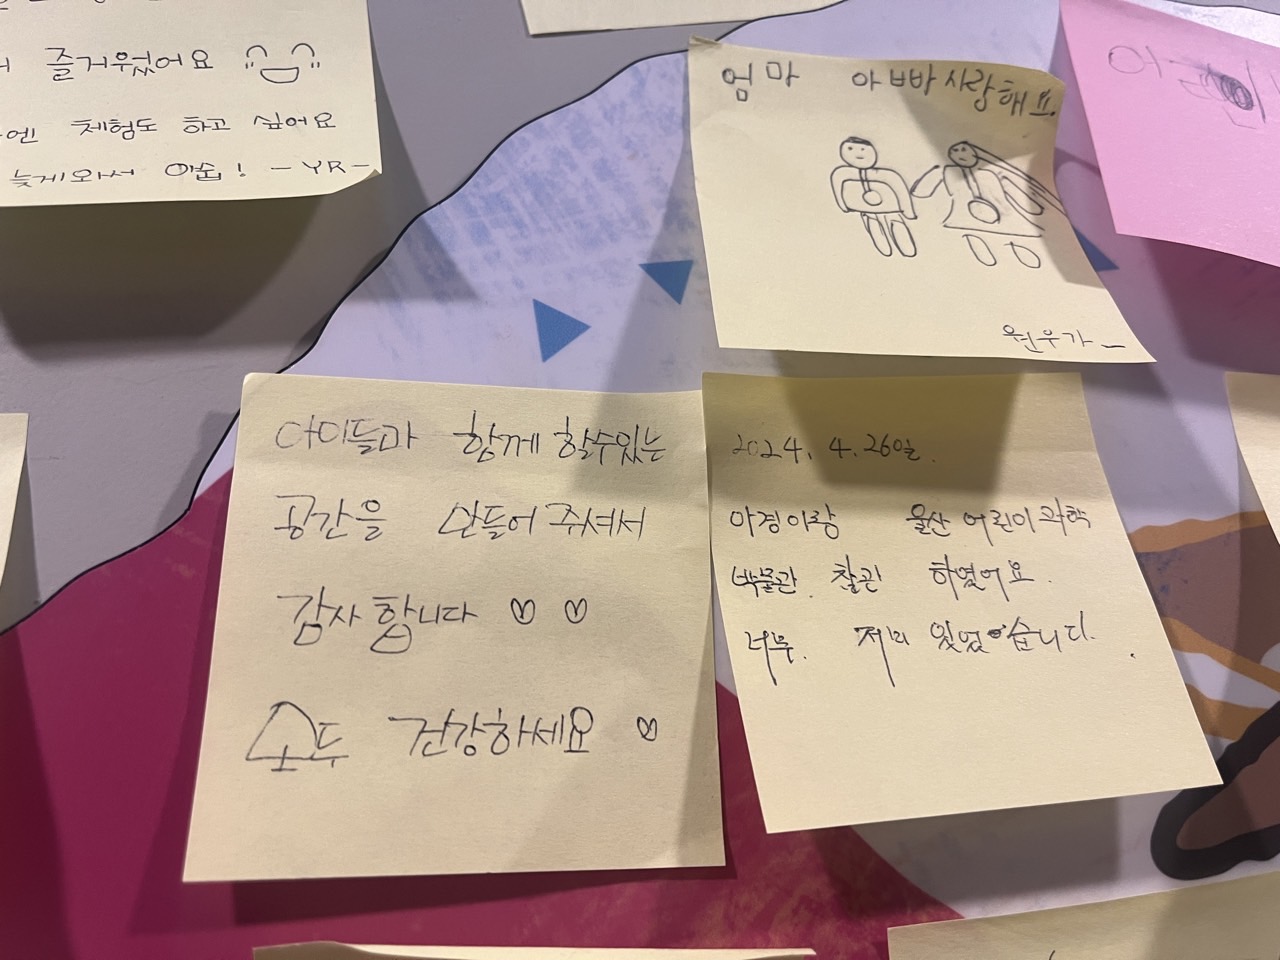 즐거웠어요
체험도 하고 싶어요
늦게와서 아쉽! -YR-
엄마 아빠 사랑해요.
원우가-
아이들과 함께 할수있는
공간을 만들어 주셔서
감사합니다 ♡ ♡
모두 건강하세요 ♡
2024. 4. 26일.
아경이랑 울산 어린이 과학
박물관. 찰관 하였어요.
너무. 재미 있었습니다.